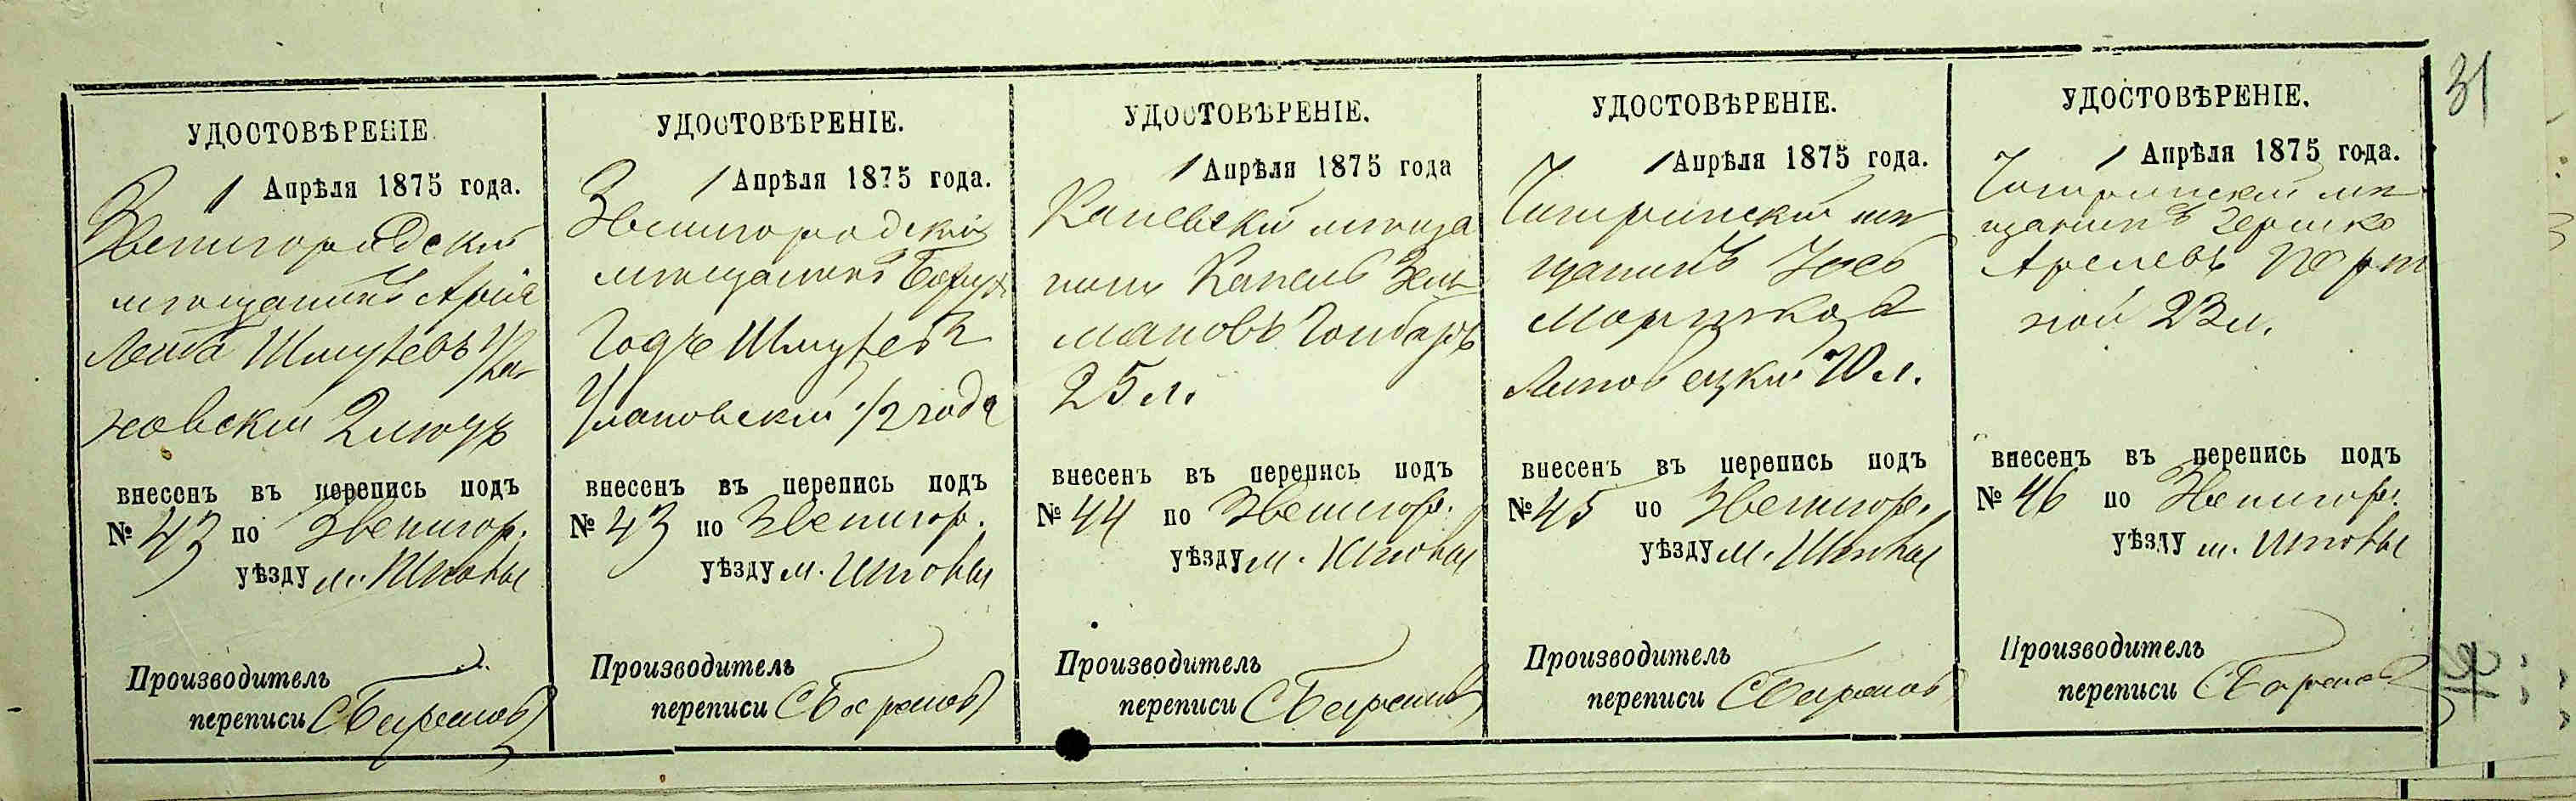 31
УДОСТОВѢРЕНІЕ
1 Апрѣля 1875 года.
Звенигородскій
мѣщанинъ Арія
Лейба Шмулевъ
новскій 2 лѣтъ
внесенъ въ перепись подъ
№ 43 по Звенигор.
уѣзду м. Шполы
Производитель
переписи СБарановъ
УДОСТОВѢРЕНІЕ.
1 Апрѣля 1875 года.
Звенигородскій
мѣщанинъ Борух
Годъе Шмулевъ
Улановскій 1/2 года
внесенъ въ перепись подъ
№ 43 по Звенигор.
уѣзду м. Шполы
Производитель
переписи СБарановъ
УДОСТОВѢРЕНІЕ.
1 Апрѣля 1875 года
Каневскій мѣща
нинъ Капель Зель
мановъ Гонбаръ
25 л.
внесенъ въ перепись подъ
№ 44 по Звенигор.
уѣзду м. Шполы
Производитель
переписи СБарановъ
УДОСТОВѢРЕНІЕ.
1 Апрѣля 1875 года.
Чигиринскій мѣ
щанинъ
Мошкова
Липовецкій 70 л.
внесенъ въ перепись подъ
№ 45 по Звенигор.
уѣзду м. Шполы
Производитель
переписи СБарановъ
УДОСТОВѢРЕНІЕ.
1 Апрѣля 1875 года.
Чигиринскій мѣ
щанинъ Гершко
Арелевъ Порт
ной 23 л.
внесенъ въ перепись подъ
№ 46 по Звенигор.
уѣзду м. Шполы
Производитель
переписи СБарановъ